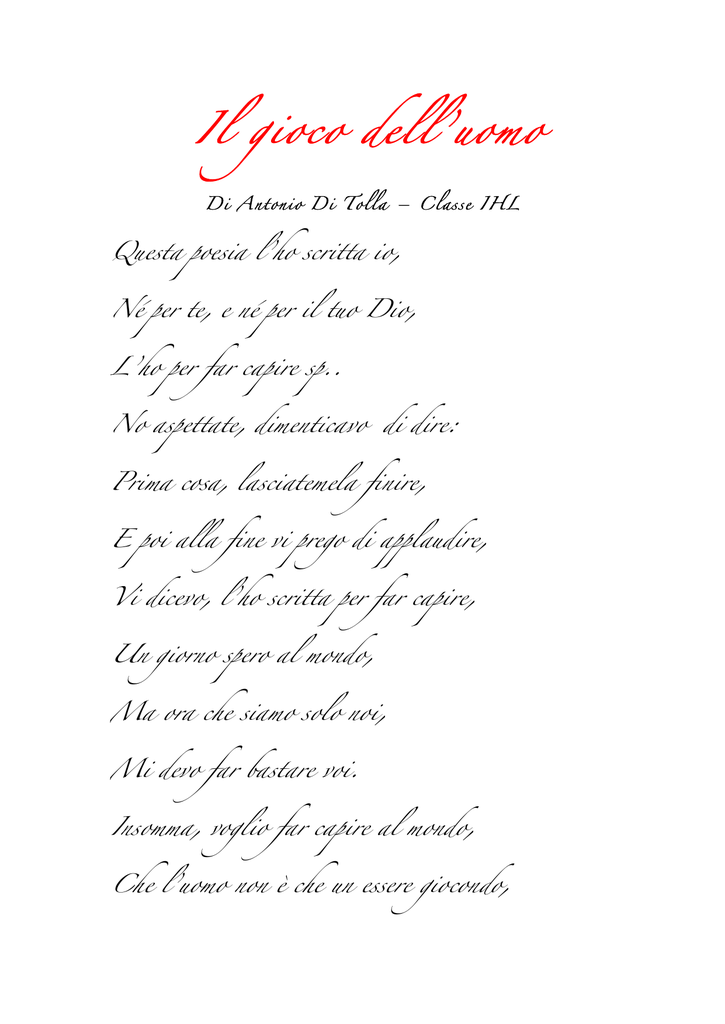 Il gioco dell'uomo
Di Antonio Di Tolla – Classe 1HL
Questa poesia l'ho scritta io,
Né per te, e né per il tuo Dio,
L'ho per far capire sp..
No aspettate, dimenticavo di dire:
Prima cosa, lasciatemela finire,
E poi alla fine vi prego di applaudire,
Vi dicevo, l'ho scritta per far capire,
Un giorno spero al mondo,
Ma ora che siamo solo noi,
Mi devo far bastare voi.
Insomma, voglio far capire al mondo,
Che l'uomo non è che un essere giocondo,